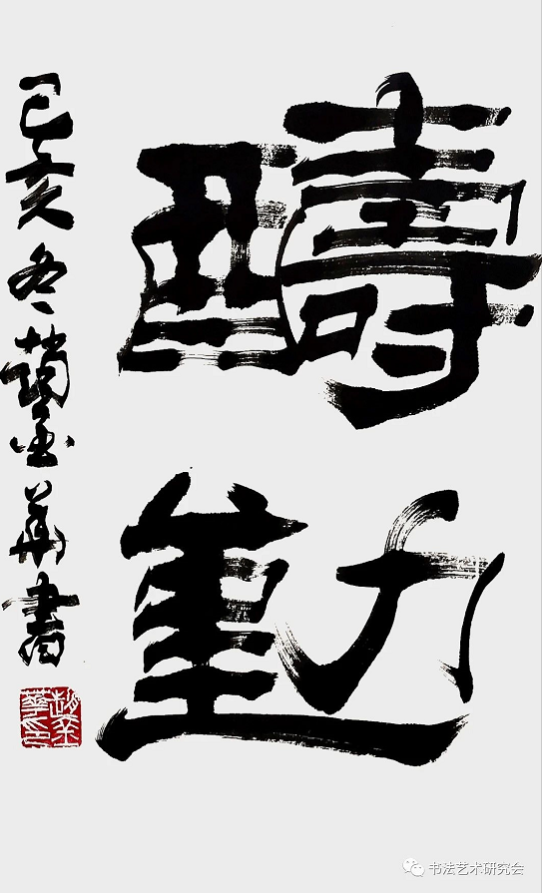 醻勤
己亥冬趙華書
書法艺术研究会